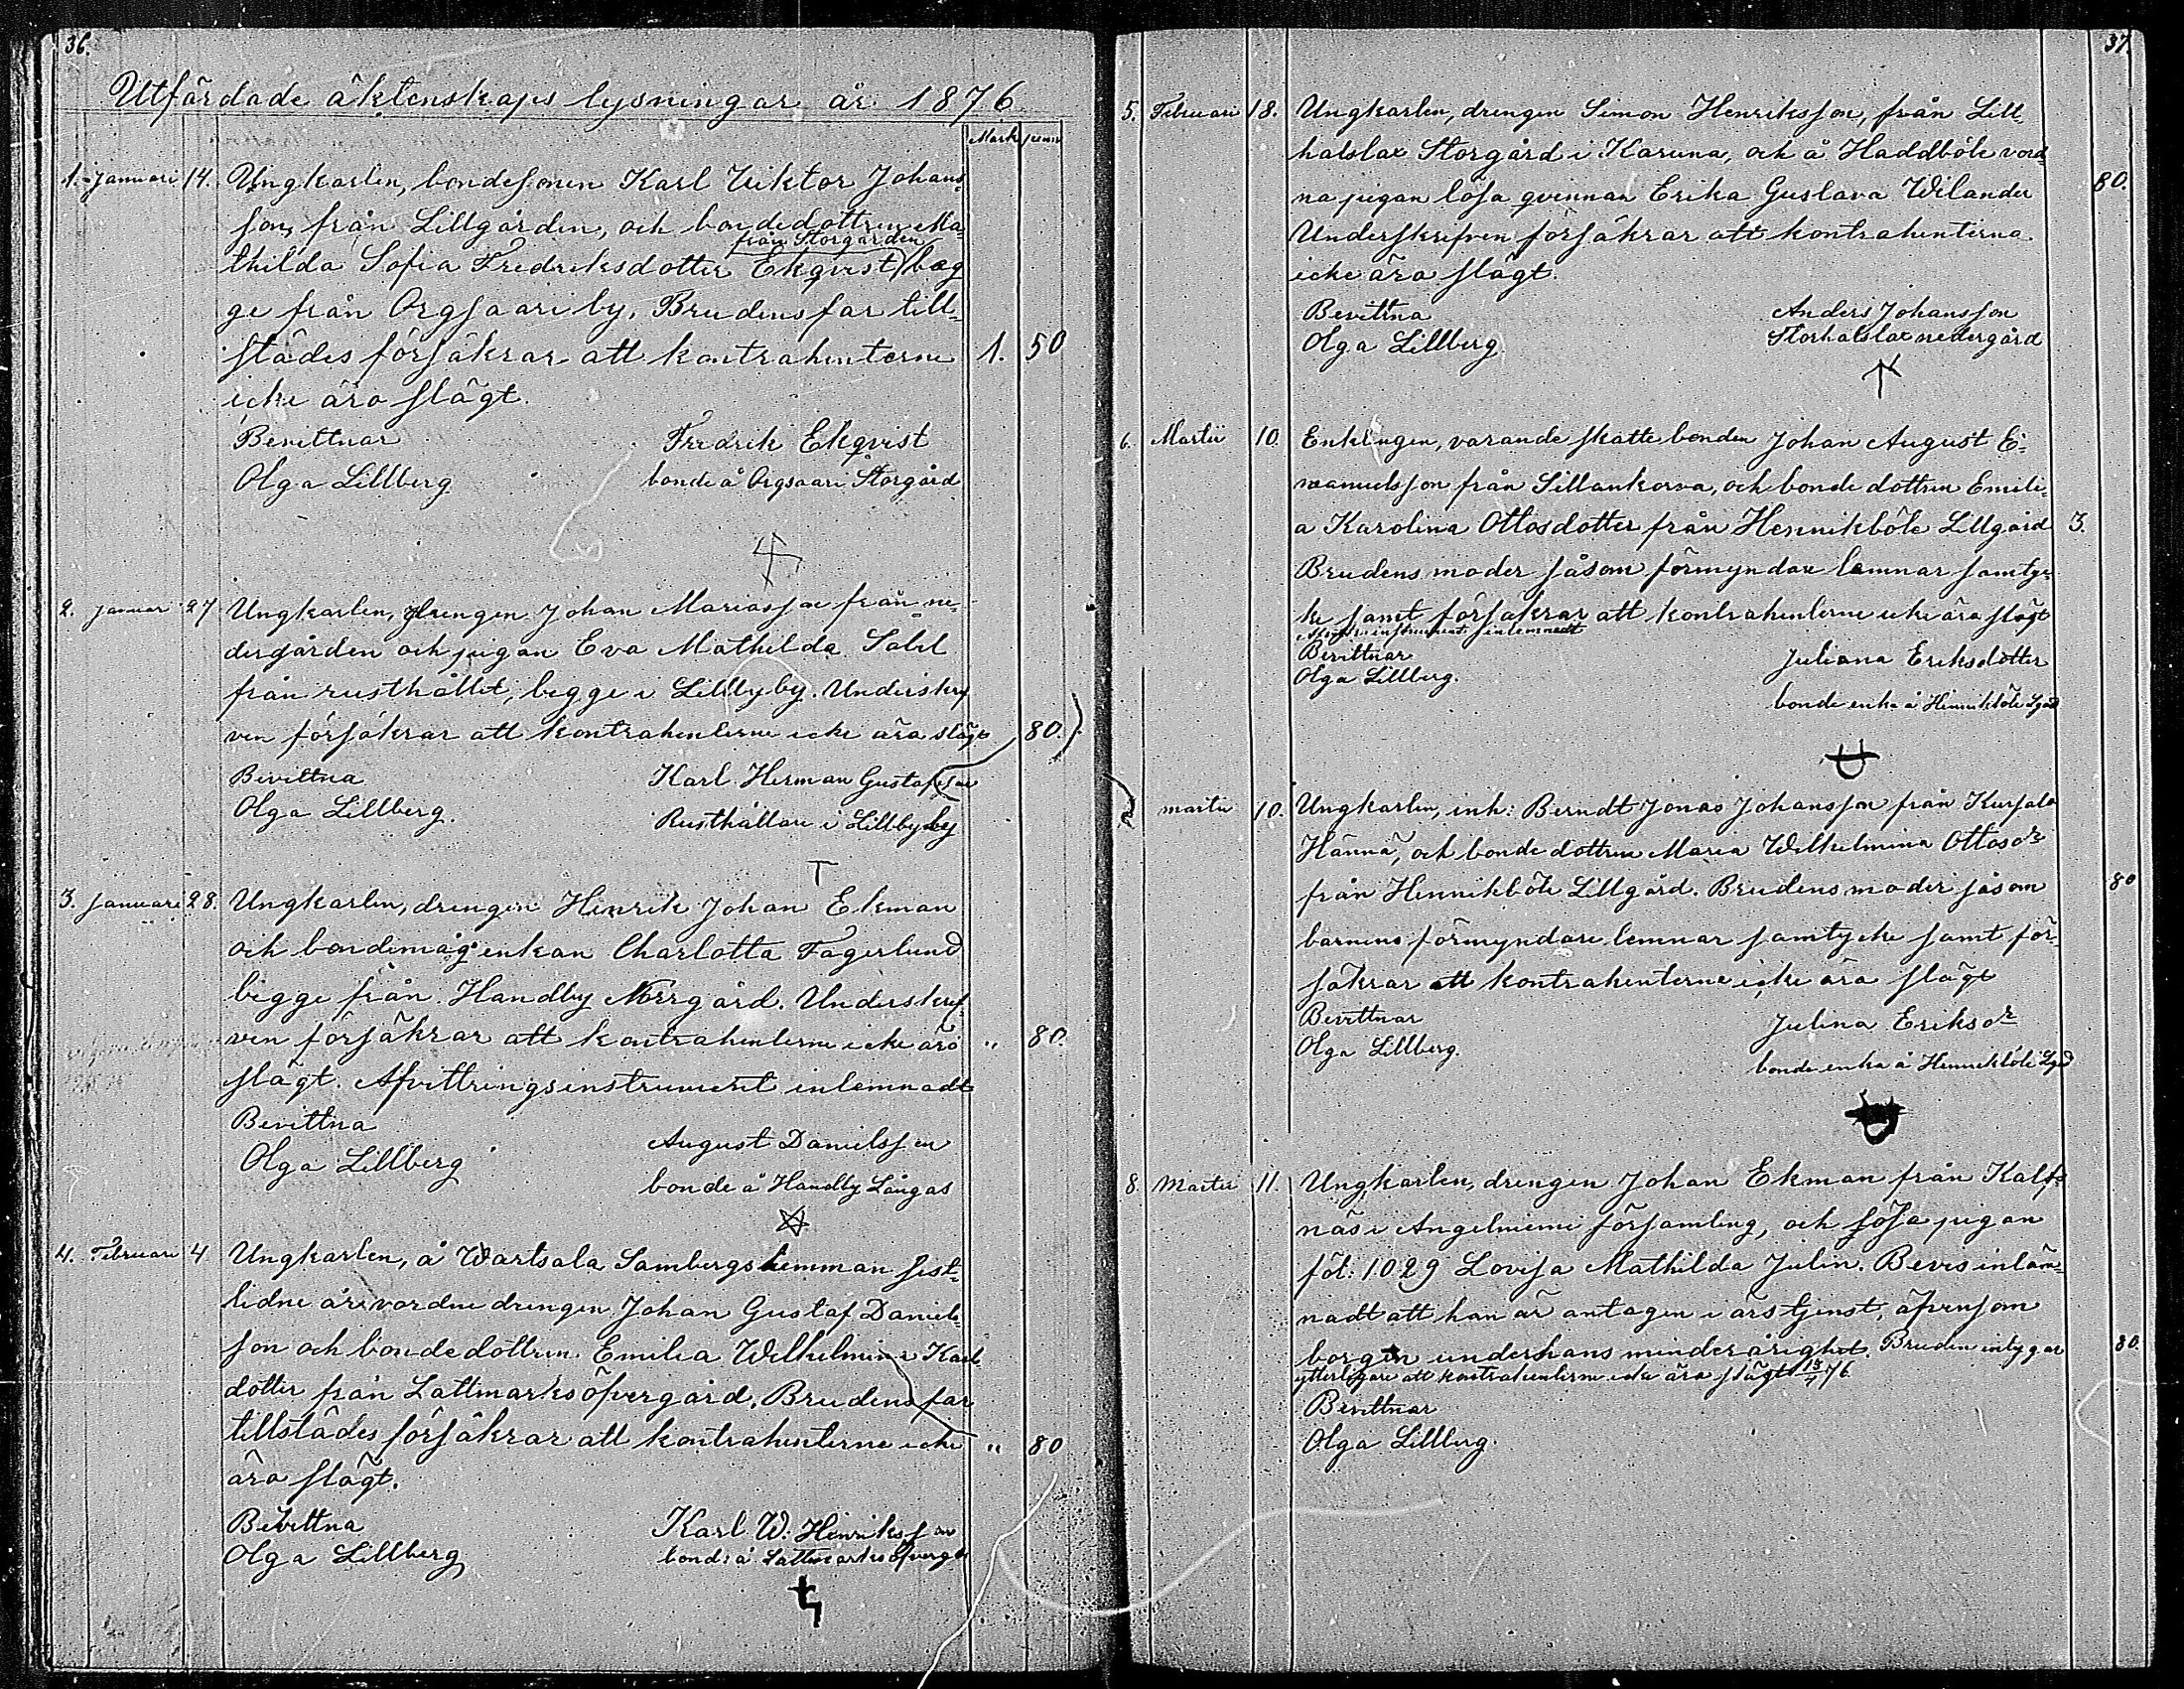 36.
Utfärdade äktenskaps lysningar år 1876
Mark penni
1. Januari 14. Ungkarlen, bondesonen Karl Viktor Johans-
son, från Lillgården, och bondedottren Ma-
från Storgården
thilda Sofia Fredriksdotter Ekqvist, beg
ge från Orgsaari by. Brudens far till-
städes försäkrar att kontrahenterne 1. 50
icke äro slägt.
Bevittnar Fredrik Ekqvist
Olga Lillberg bonde å Orgsaari Storgård
2. Januari 27 Ungkarlen, drengen Johan Mariasson från ne-
dergården och pigan Eva Mathilda Sahl
från rusthållet, begge i Lillby by. Underskref
ven försäkrar att kontrahenterne icke äro slägt 80.
Bevittna Karl Herman Gustafsson
Olga Lillberg. Rusthållare i Lillby by
3. Januari 28. Ungkarlen, drengen Henrik Johan Ekman
och bondemågenkan Charlotta Fagerlund
begge från Handby Norrgård. Underskref
ven försäkrar att kontrahenterne icke äro " 80.
slägt. Afvittringsinstrument inlemnadt
Bevittna
Olga Lillberg August Danielsson
bonde å Handby Långas
4. Februari 4 Ungkarlen, å Wartsala Sambergs hemman sist-
lidne år vordne drengen Johan Gustaf Daniels-
son och bondedottren Emilia Wilhelmina Karls
dotter från Lattmarks öfvergård. Brudens far
tillstädes försäkrar att kontrahenterne icke " 80
äro slägt.
Bevittna Karl W. Henriksson
Olga Lillberg bonde å Lattmarks öfvergår
37.
5. Februari 18. Ungkarlen, drengen Simon Henriksson, från Lill-
halslax Storgård i Karuna, och å Haddböle vord
na pigan lösa qvinnan Erika Gustava Wilander 80.
Underskrefven försäkrar att kontrahenterna
icke äro slägt.
Bevittna Anders Johansson
Olga Lillberg. Storhalslax nedergård
6. Martii 10. Enklingen, varande skattebonden Johan August E-
manuelsson från Sillankorva, och bondedottren Emili-
a Karolina Ottosdotter från Hennikböle Lillgård 3.
Brudens moder såsom förmyndare lemnar samtyc-
ke samt försäkrar att kontrahenterne icke äro slägt
inlemnadt
Bevittnar Juliana Eriksdotter
Olga Lillberg.
bonde enka å Hennikböle Lgård
martii 10. Ungkarlen, inh: Berndt Jonas Johansson från Kursala
Hännä, och bondedottren Maria Wilhelmina Ottosdr
från Hennikböle Lillgård. Brudens moder såsom 80
barnens förmyndare lemnar samtycke samt för-
säkrar att kontrahenterne icke äro slägt
Bevittnar Julina Eriksdr
Olga Lillberg.
bonde enka å Hennikböle Lgd
8. Martii 11. Ungkarlen, drengen Johan Ekman från Kalf-
näs i Angelniemi församling, och lösa pigan
föl: 1029 Lovisa Mathilda Julin. Bevis inläm-
nadt att han är antagen i årstjenst, äfvensom
borgen under hans minderårighet. Bruden intygar 80.
ytterligare att kontrahenterne icke äro slägt 15/4 76
Bevittnar
Olga Lillberg.